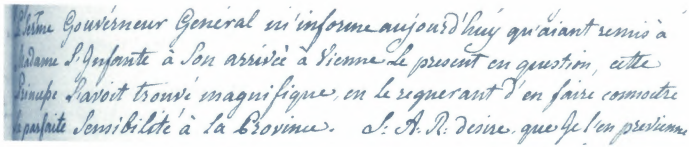 Gouvérneur Général m'informe aujourd'huy qu'aiant remis à
Madame L'Infante à Son arrivée à Vienne le présent en question, cette
Princesse L'avoit trouvé magnifique, en le requerant d'en faire connoitre
la parfaite Sensibilité à la Province. S: A: R: désire, que Je l'en previenne